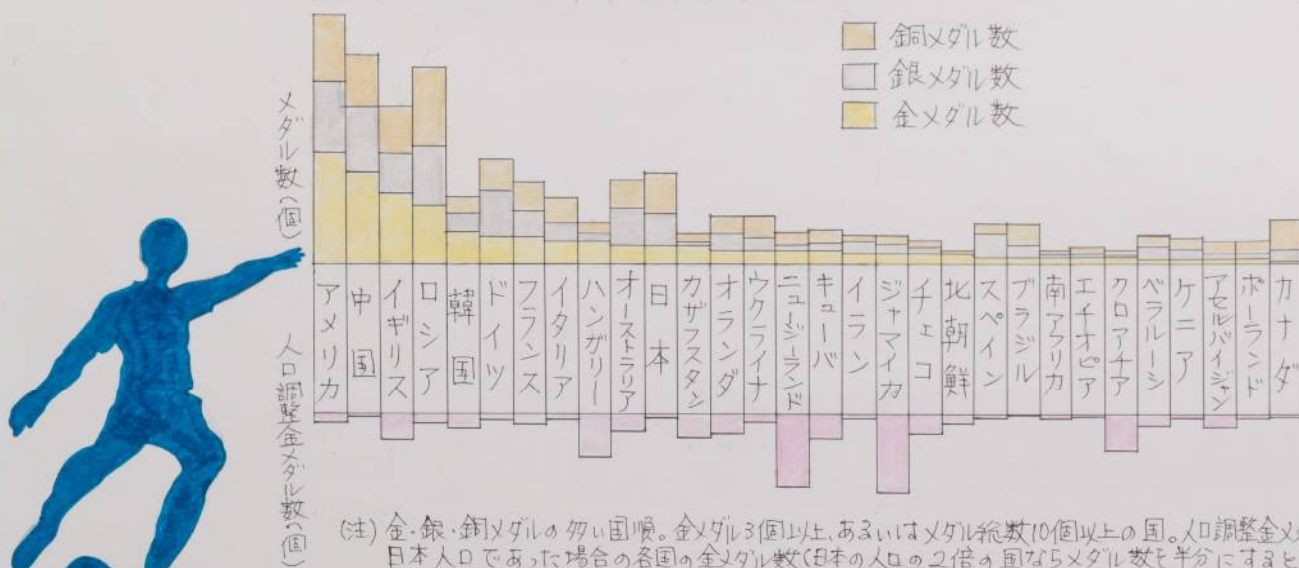 銅メダル数
銀メダル数
金メダル数
メダル数(個)
アメリカ
中国
イギリス
ロシア
韓国
ドイツ
フランス
イタリア
ハンガリー
オーストラリア
日本
カザフスタン
オランダ
ウクライナ
ニュージーランド
キューバ
イラン
ジャマイカ
チェコ
北朝鮮
スペイン
ブラジル
南アフリカ
エチオピア
クロアチア
ベラルーシ
ケニア
アセルバイジャン
ポーランド
カナダ
人口調整金メダル数(個)
(注)金・銀・銅メダルの多い国順。金メダル3個以上、あるいはメダル総数10個以上の国。人口調整金メ
日本人口であった場合の各国の金メダル数(日本の人口の2倍の国ならメダル数を半分にすると